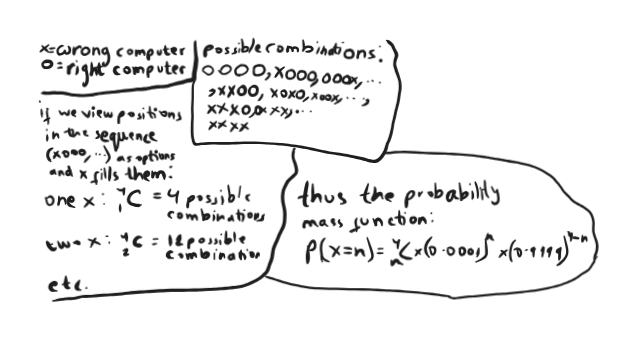 x=wrong computer
0=right computer
possible combinations:
0000, x000, 000x, ...
, xx00, x0x0, x00x, ...,
xxx0, 0xxx, ...
xxxx
if we view positions
in the sequence
(x000, ..) as options
and x fills them:
one x: ⁴₁C = 4 possible
combinations
two x: ⁴₂C = 12 possible
combination
etc.
thus the probability
mass function:
P(x=n) = ⁴ₙC x(0.0001)ⁿ x(0.9999)⁴⁻ⁿ